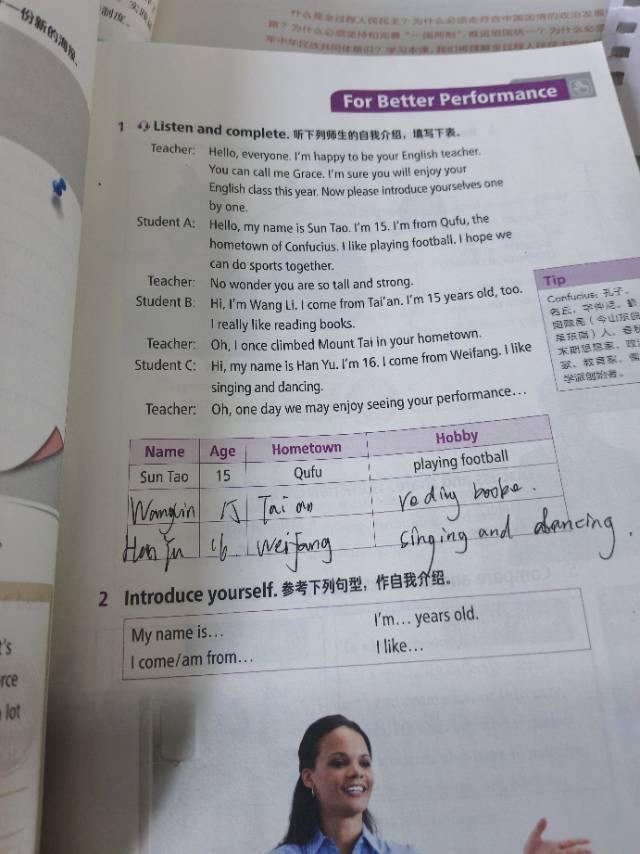 一份新的海报
制度。
什么是全过程人民民主？为什么必须走符合中国国情的政治发展
路？为什么必须坚持和完善“一国两制”，推进祖国统一？为什么必
牢中华民族共同体意识？学习本课，我们将理解全过程人民民
For Better Performance
1 Listen and complete. 听下列师生的自我介绍，填写下表。
Teacher: Hello, everyone. I'm happy to be your English teacher.
You can call me Grace. I'm sure you will enjoy your
English class this year. Now please introduce yourselves one
by one.
Student A: Hello, my name is Sun Tao. I'm 15. I'm from Qufu, the
hometown of Confucius. I like playing football. I hope we
can do sports together.
Teacher: No wonder you are so tall and strong.
Student B: Hi, I'm Wang Li. I come from Tai'an. I'm 15 years old, too.
I really like reading books.
Teacher: Oh, I once climbed Mount Tai in your hometown.
Student C: Hi, my name is Han Yu. I'm 16. I come from Weifang. I like
singing and dancing.
Teacher: Oh, one day we may enjoy seeing your performance…
Tip
Confucius: 孔子，
名丘，字仲尼，
人，春秋
末期思想家、政治
家、教育家，儒
学派创始者。
Name Age Hometown Hobby
Sun Tao 15 Qufu playing football
15 Tai an reding booke.
Han Yu 16 Weifang singing and dancing.
2 Introduce yourself. 参考下列句型，作自我介绍。
My name is… I'm… years old.
I come/am from… I like…
's
rce
lot